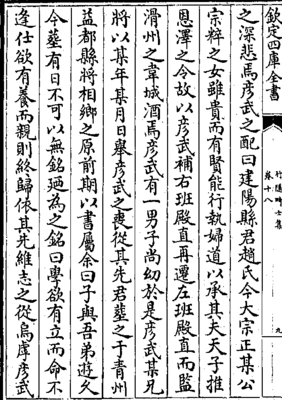 欽定四庫全書
之深悲焉彦武之配曰建陽縣君趙氏今大宗正某公
宗粹之女雖貴而有賢能行執婦道以承其夫天子推
恩澤之令故以彦武補右班殿直再遷左班殿直而監
滑州之韋城酒焉彦武有一男子尚幼於是彦武某兄
將以某年某月日舉彦武之喪從其先君塟之于青州
益都縣將相鄉之原前期以書屬余曰子與吾弟遊久
今塟有日不可以無銘廼為之銘曰學欲有立而命不
逢仕欲有養而親則終歸依其先維志之從烏虖彦武
竹隱畸士集
卷十八
九